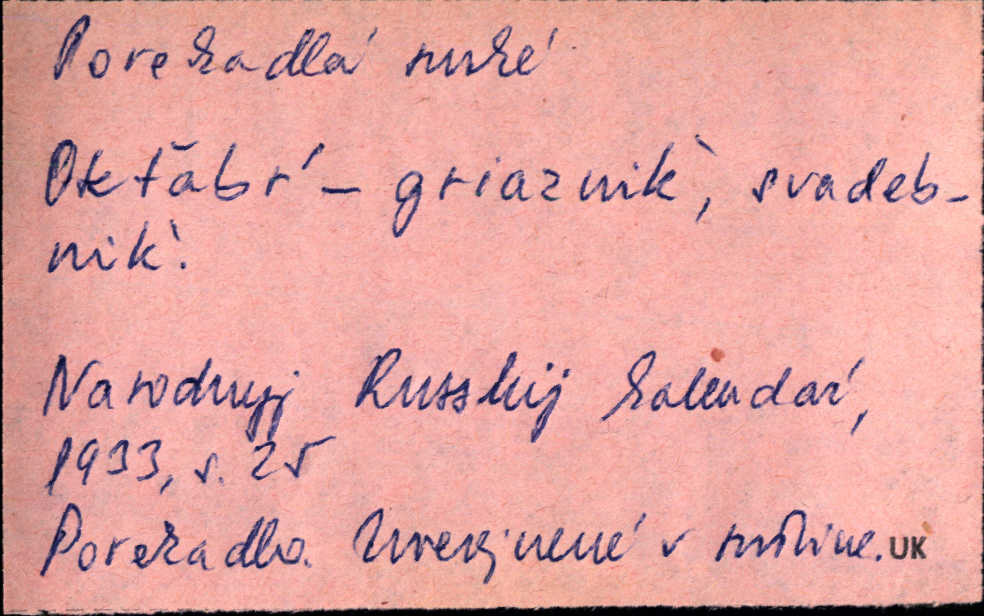 Porekadlá ruské
Okťabŕ – griaznik, svadeb-
nik.
Narodnyj Russkij kalendaŕ,
1933, s. 25
Porekadlo. Uverejnené v rušťine. UK